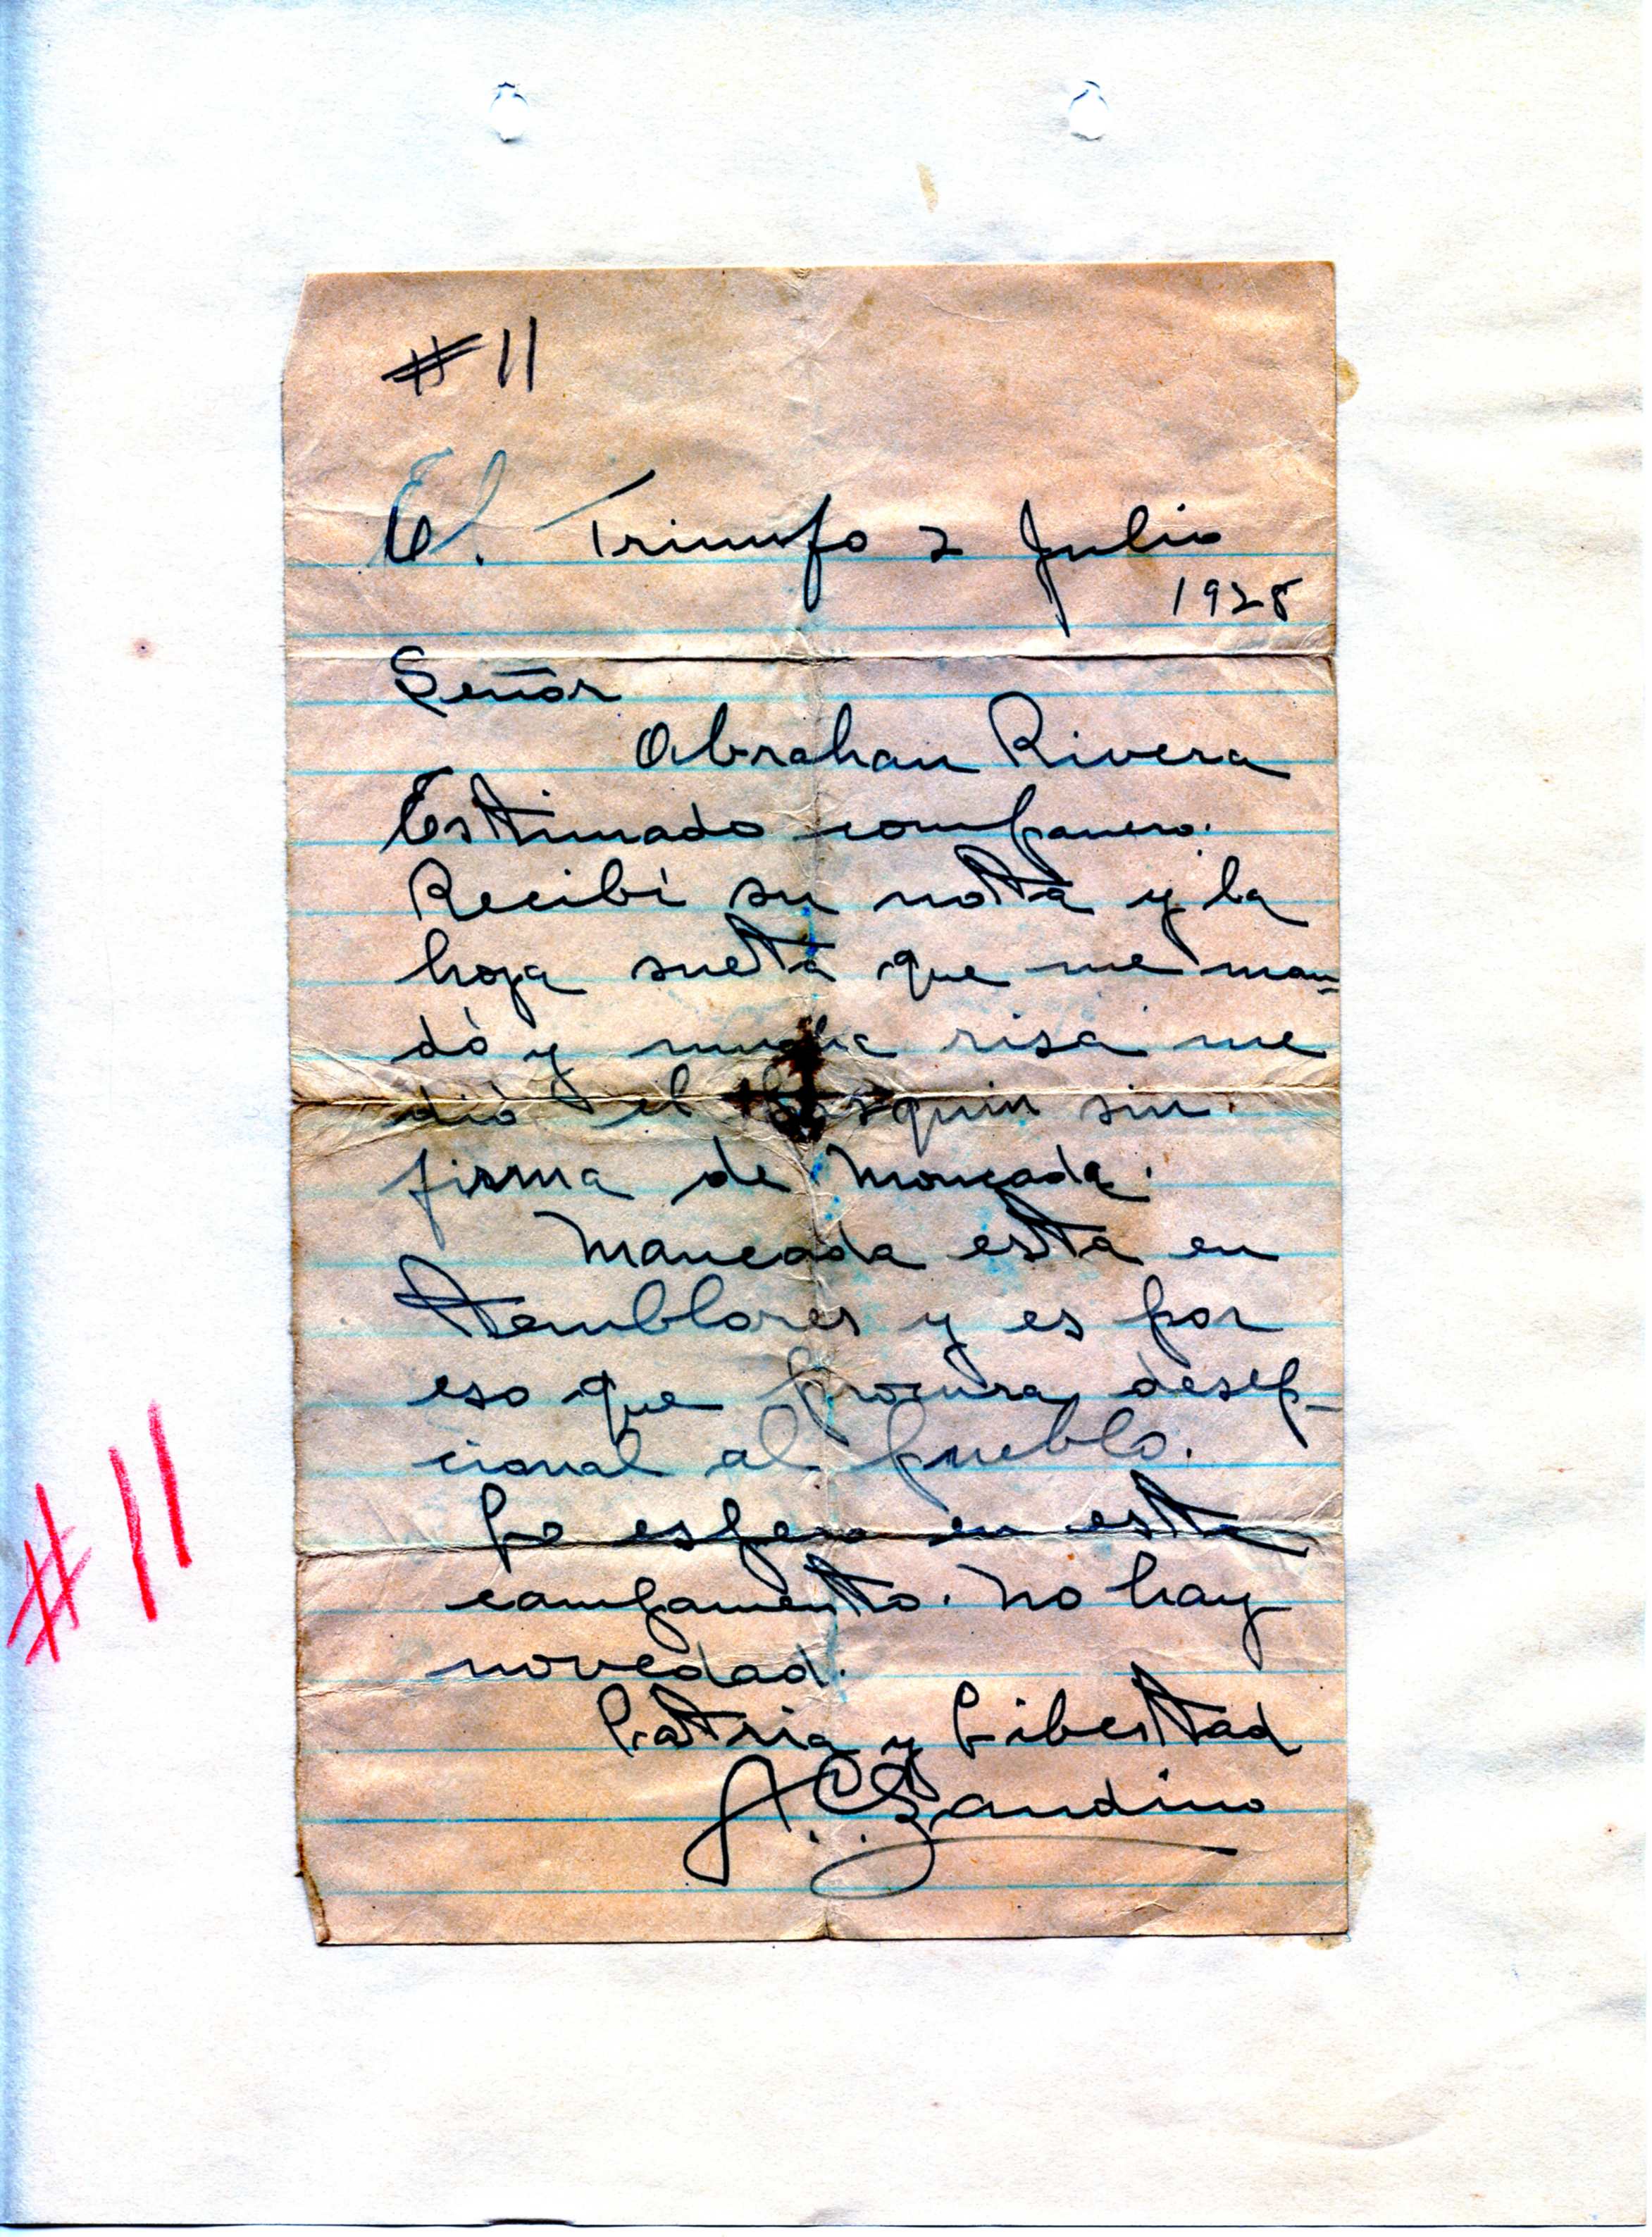 # 11
El. Triunfo 2 Julio
1928
Señor
Abrahan Rivera
Estimado compañero.
Recibí su nota y la
hoja suelta que me man=
dó y mucha risa me
dió el pasquin sin
firma de Moncada.
Moncada está en
temblores y es por
eso que procura desep-
cional al pueblo.
Lo espero en este
campamento. No hay
novedad.
Patria y Libertad
A. C. Sandino
# 11